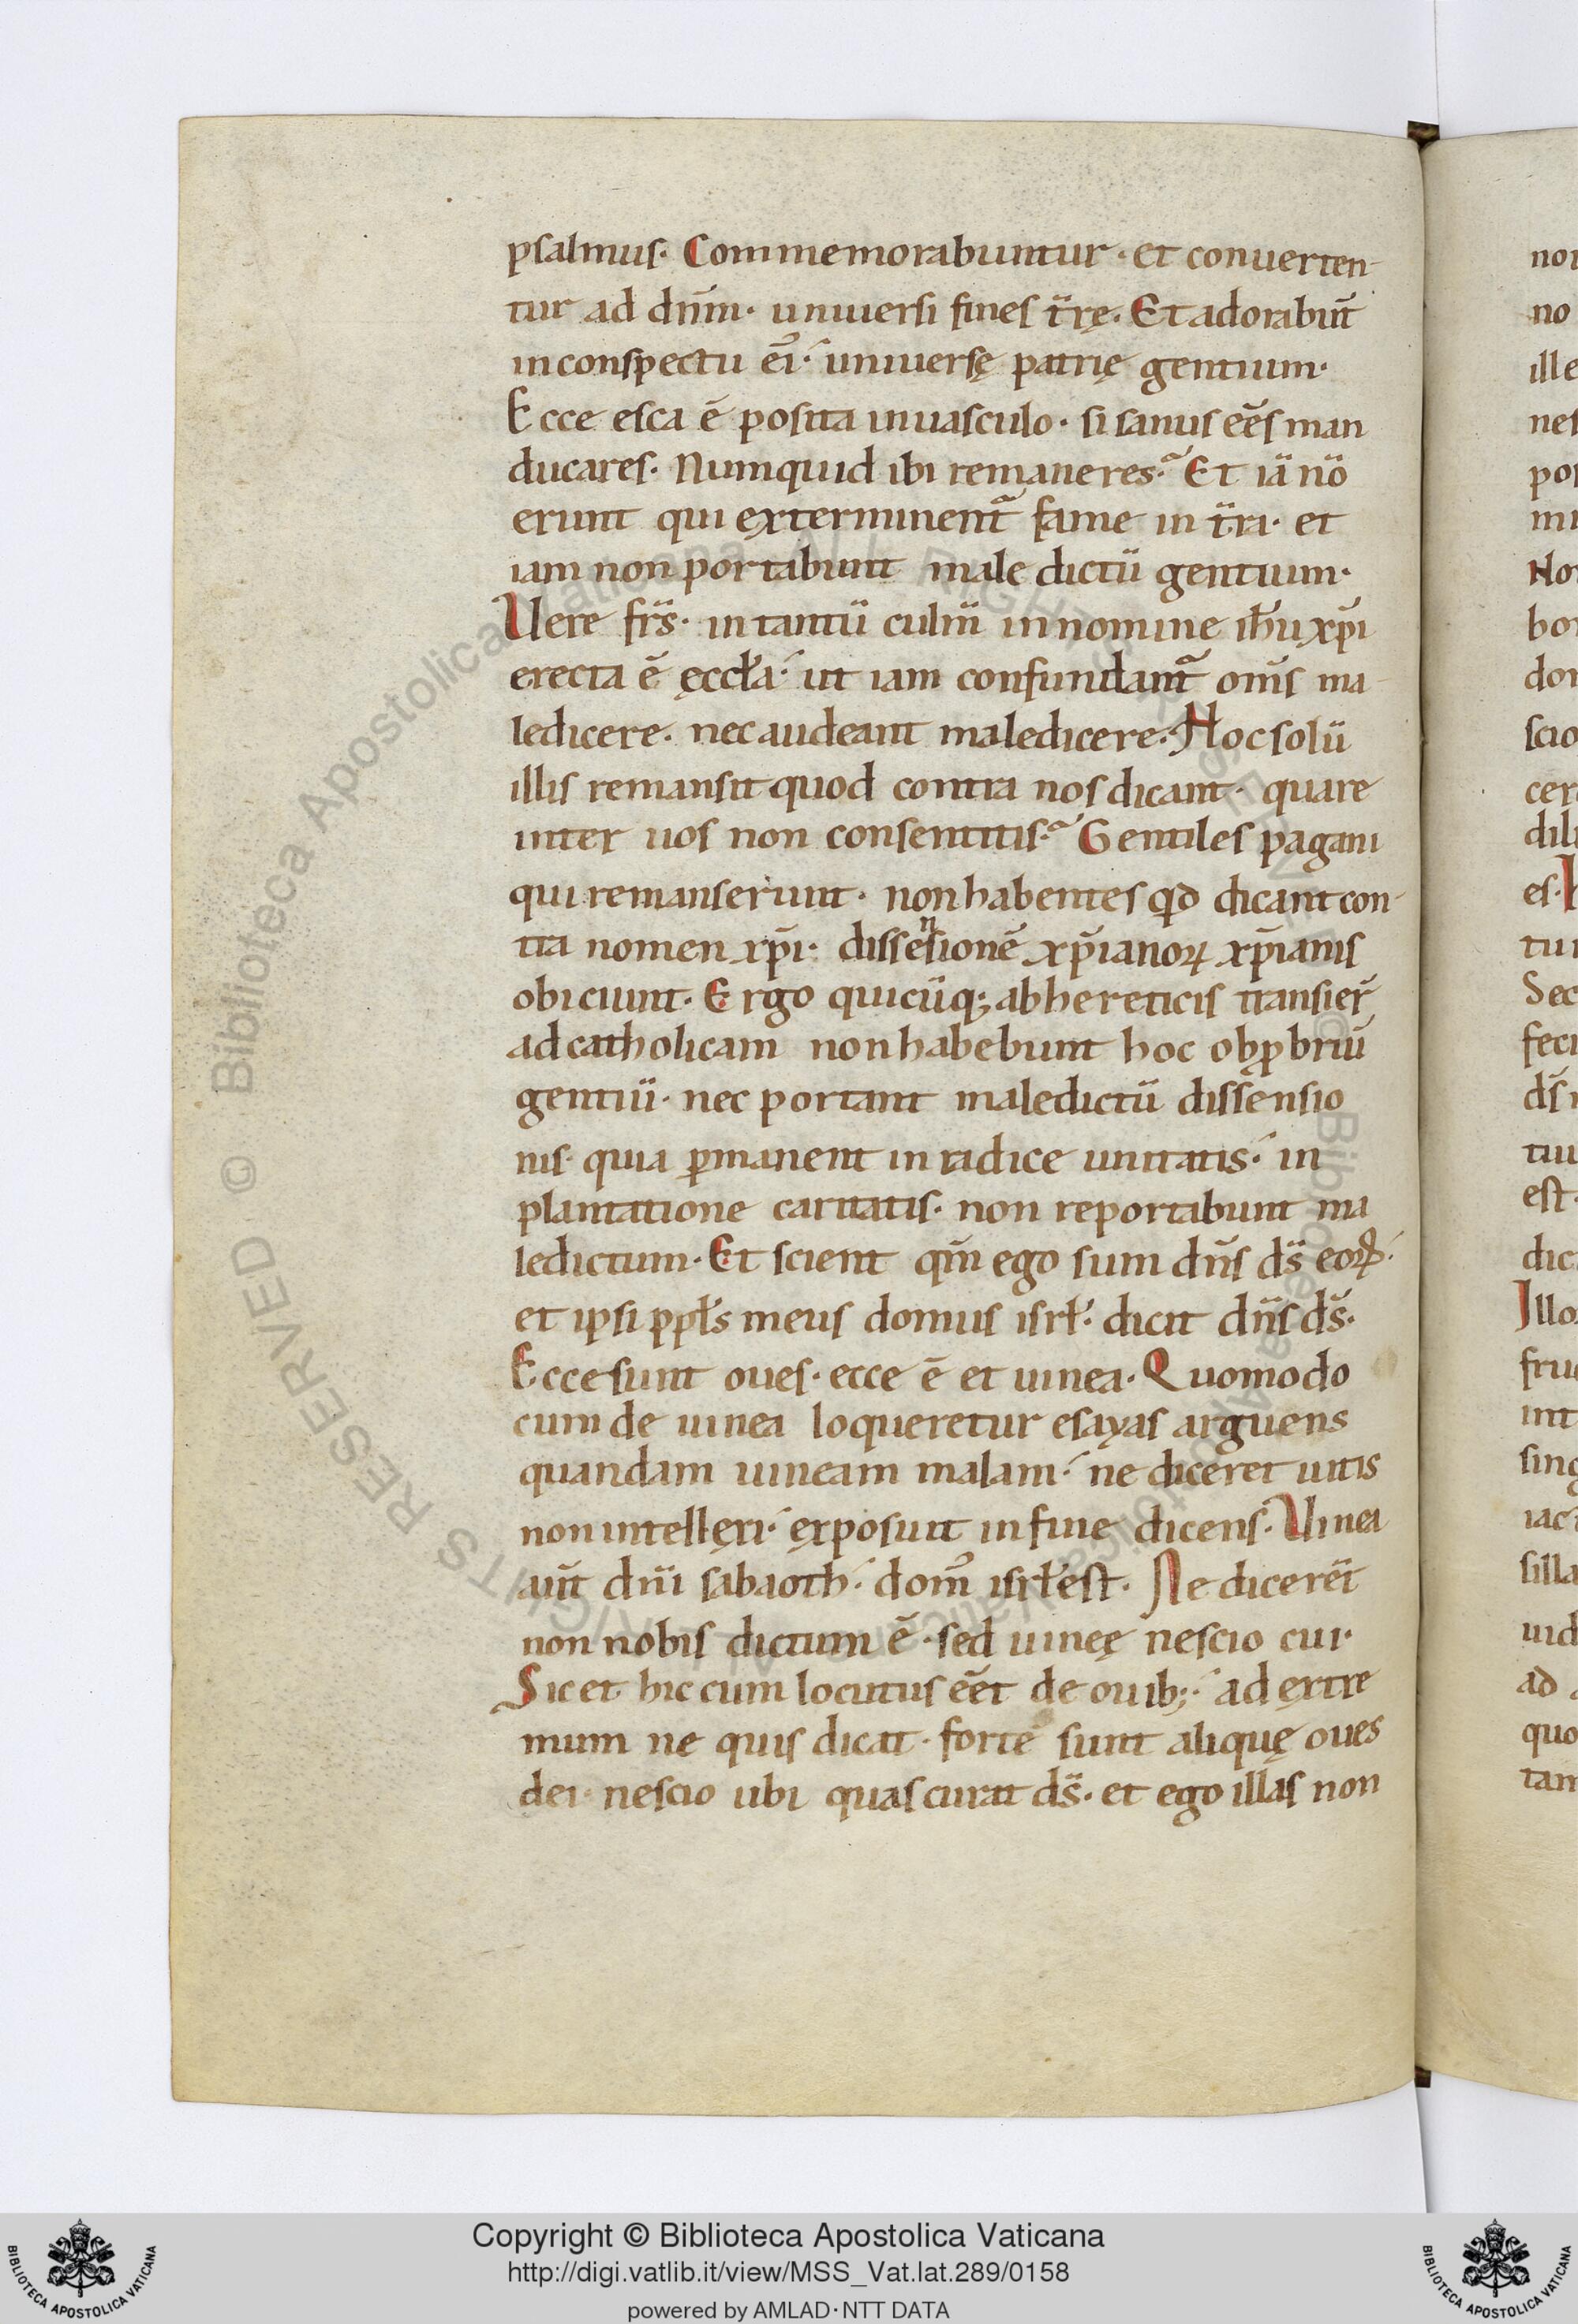 psalmus. Commemorabuntur. et conuerten-
tur ad dn̄m. uniuersi fines t̄rę. Et adorabun̄t
in conspectu ei᷒. uniuersę patrię gentium.
Ecce esca ē posita in uasculo. si sanus ēēs man
ducares. Numquid ibi remaneres? Et iā nō
erunt qui exterminent᷑ fame in t̄ra. et
iam non portabunt male dictū gentium.
Uere fr̄s. in tantū culm̄ in nomine ih̄u xp̄i
erecta ē ęccł̄a. ut iam confundant᷑ om̄s ma-
ledicere. nec audeant maledicere. Hoc solū
illis remansit quod contra nos dicant. quare
inter uos non consentitis? Gentiles pagani
qui remanserunt. non habentes qd̄ dicant con-
tra nomen xp̄i. dissensionē xp̄ianoꝝ xp̄ianis
obiciunt. Ergo quicūq; ab hereticis transier̄
ad catholicam non habebunt hoc obꝓbriū
gentiū. nec portant maledictū dissensio
nis. quia ꝑmanent in radice unitatis. in
plantatione caritatis. non reportabunt ma
ledictum. Et scient qm̄ ego sum dn̄s ds̄ eoꝝ.
et ipsi ppl̄s meus domus isrł. dicit dn̄s ds̄.
Ecce sunt oues. ecce ē et uinea. Quomodo
cum de uinea loqueretur esayas arguens
quandam uineam malam. ne diceret uitis
non intellexi. exposuit in fine dicens. Uinea
aut̄ dn̄i sabaoth. dom᷒ isrł est. Ne dicerēt
non nobis dictum ē. sed uineę nescio cui.
Sic et hic cum locutus ēēt de ouib;. ad extre
mum ne quis dicat. forte sunt alique̜ oues
dei nescio ubi quas curat ds̄. et ego illas non
nor
no
ille
nes
pos
mi
Nor
bor
dor
scio
cer
dil
es. I
tur
Sec
feci
ds̄
tiu
est.
dic
Illo
fru
int
sing
iac
silla
uid
ad
quo
tam
© Biblioteca Apostolica Vaticana ALL RIGHTS RESERVED
Copyright © Biblioteca Apostolica Vaticana
http://digi.vatlib.it/view/MSS_Vat.lat.289/0158
powered by AMLAD·NTT DATA
BIBLIOTECA APOSTOLICA VATICANA
BIBLIOTECA APOSTOLICA VATICANA